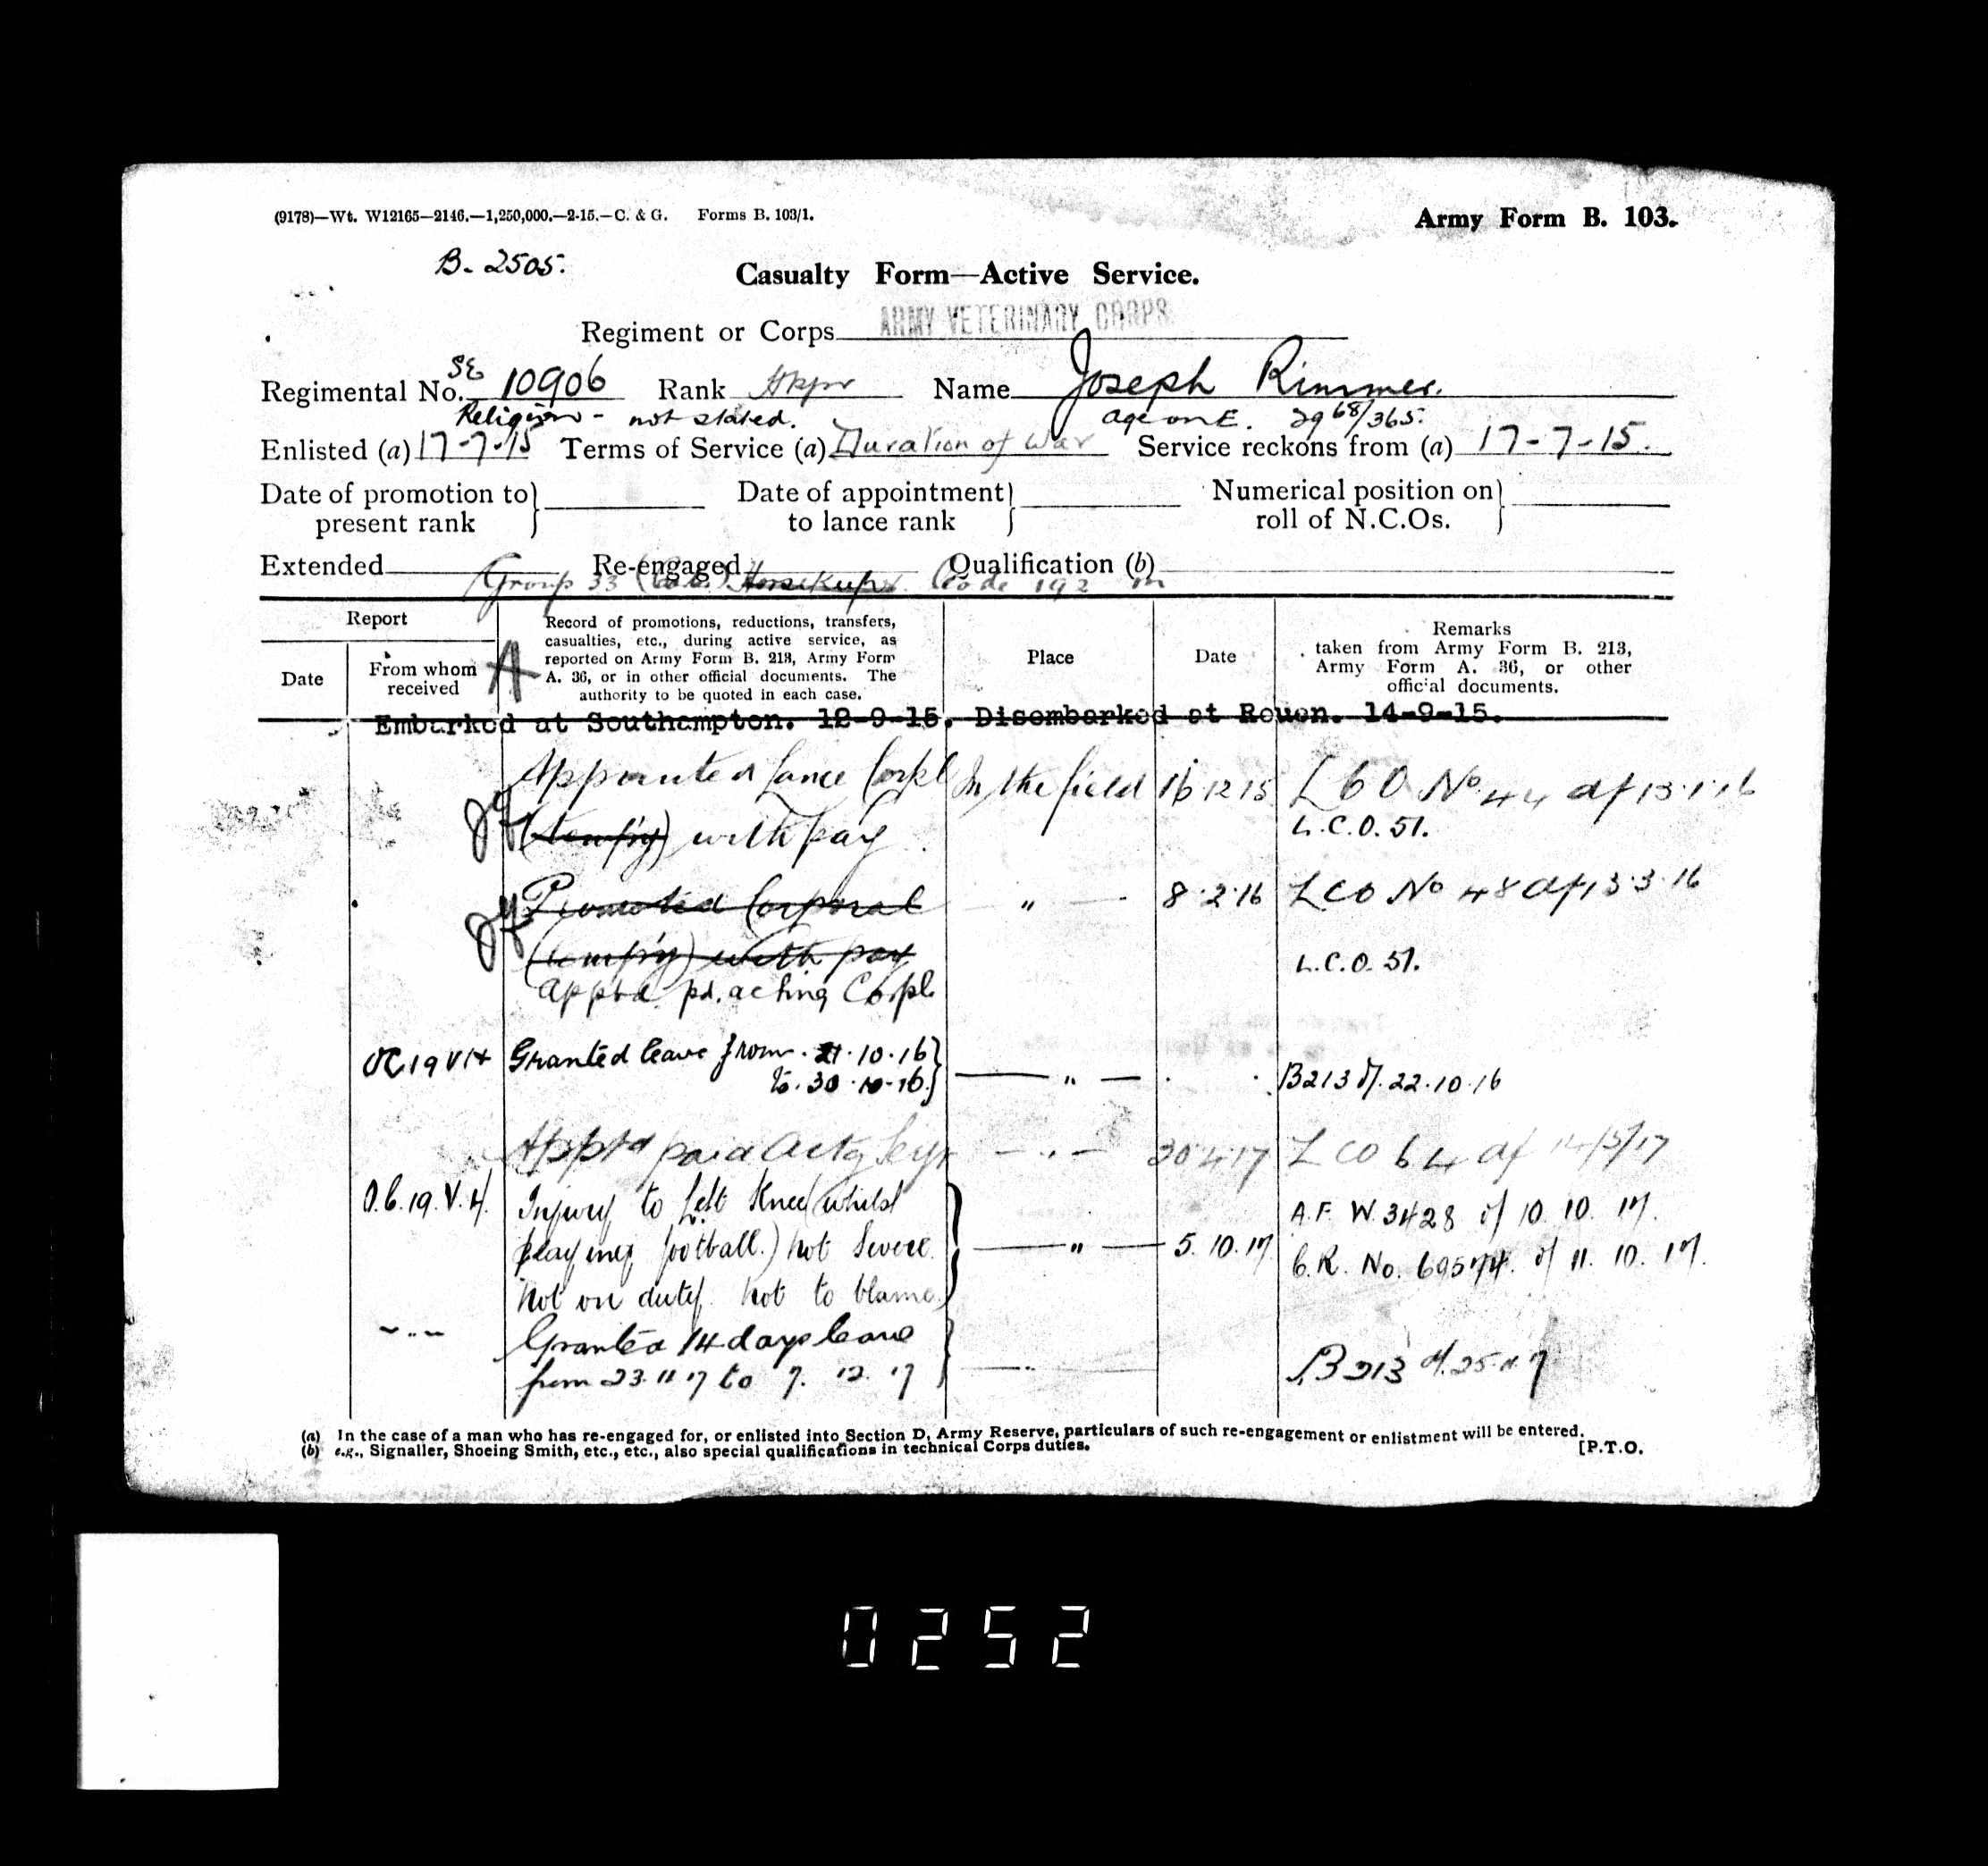 (9178)—Wt. W12165—2146.—1,250,000.—2-15.—C. & G. Forms B. 103/1.
Army Form B. 103.
B. 2505.
Casualty Form—Active Service.
Regiment or Corps ARMY VETERINARY CORPS
Regimental No. SE 10906 Rank Name Joseph Rimmer.
Religion - not stated. age on E. 29 68/365.
Enlisted (a) 17-7-15 Terms of Service (a) Duration of War Service reckons from (a) 17-7-15.
Date of promotion to present rank Date of appointment to lance rank Numerical position on roll of N.C.Os.
Extended Re-engaged Qualification (b)
Group 33 Code 192
Report
Date
From whom received
A
Record of promotions, reductions, transfers,
casualties, etc., during active service, as
reported on Army Form B. 213, Army Form
A. 36, or in other official documents. The
authority to be quoted in each case.
Place
Date
Remarks
taken from Army Form B. 213,
Army Form A. 36, or other
official documents.
Embarked at Southampton. 12-9-15. Disembarked at Rouen. 14-9-15.
Appointed Lance Corpl In the field 16 12 15 No 44 of 13.1.16
(temp'y) with pay L.C.O. 51.
Promoted Corporal " 8.2.16 LCO No 48 of 13.3.16
(temp'y) with pay L.C.O. 51.
apptd pd. acting Corpl.
OC 19 VH Granted leave from 21.10.16
to. 30.10.16. " B213 d/. 22.10.16
Apptd paid Actg Sergt " 30.4.17 LCO 64 of 14/5/17
O.C. 19. V.H. Injury to Left Knee (whilst A.F. W.3428 d/ 10. 10. 17.
playing football.) Not Severe. " 5. 10. 17 C.R. No. 69574. d/ 11. 10. 17.
Not on duty. Not to blame.
" Granted 14 days leave
from 23.11.17 to 7. 12. 17 " B213 d/. 25.11.17
(a) In the case of a man who has re-engaged for, or enlisted into Section D, Army Reserve, particulars of such re-engagement or enlistment will be entered.
(b) e.g., Signaller, Shoeing Smith, etc., etc., also special qualifications in technical Corps duties.
[P.T.O.
0252